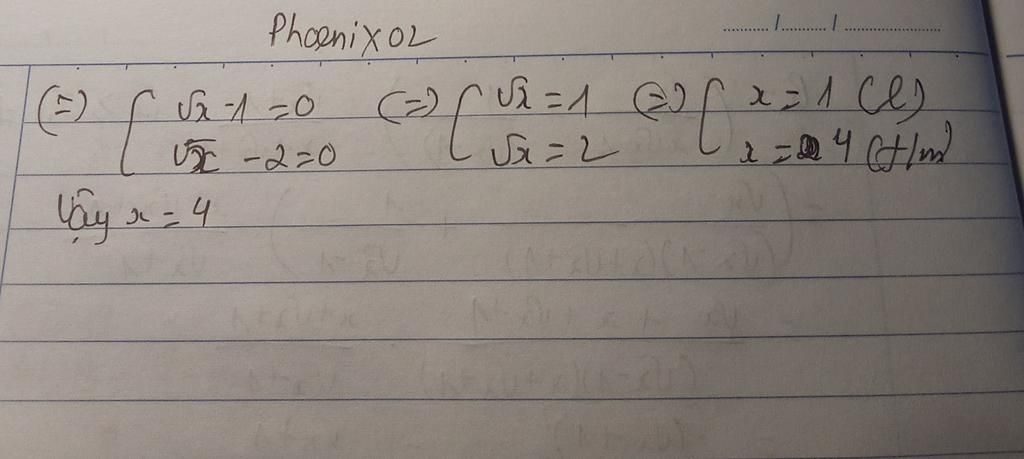 Phoenix02
(=) [ √x - 1 = 0 (=) [ √x = 1 (=) [ x = 1 (l)
√x - 2 = 0 √x = 2 x = 4 (t/m)
Vậy x = 4